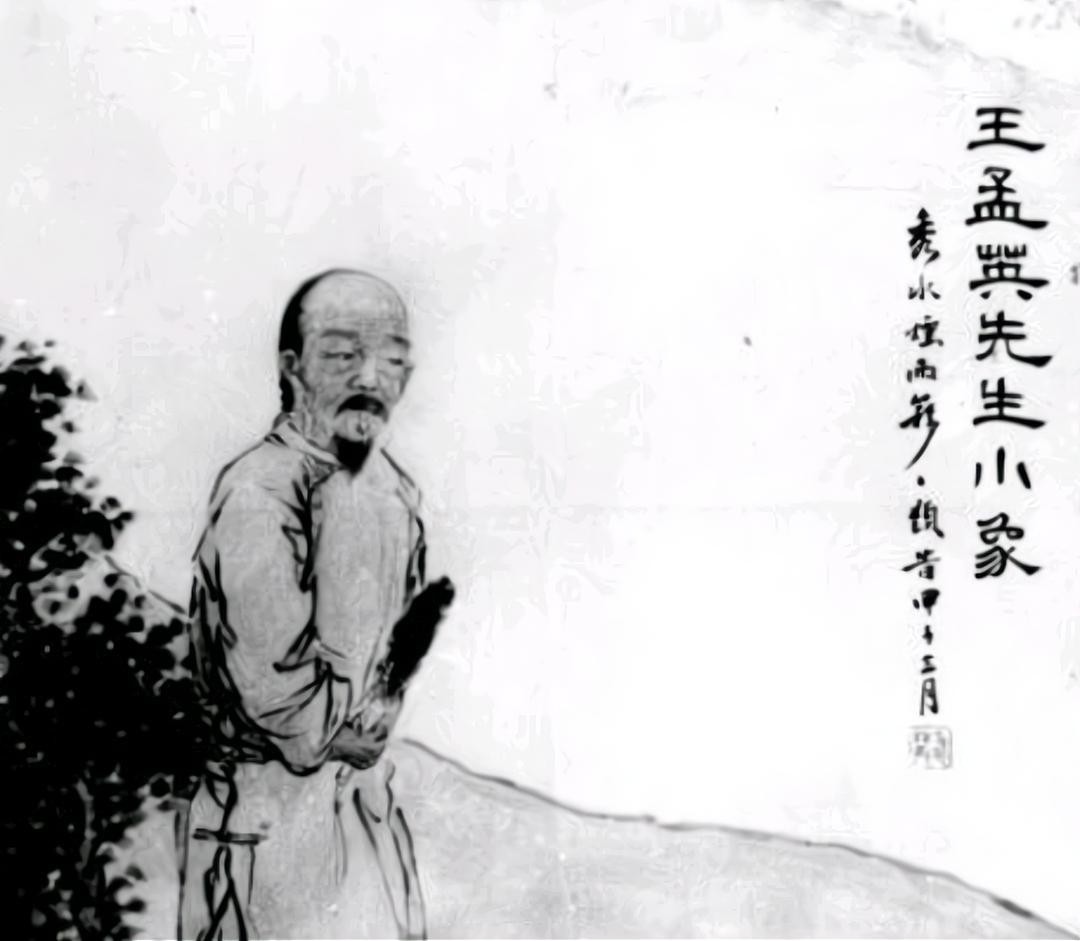 王孟英先生小象
秀水煙雨 昔甲子二月